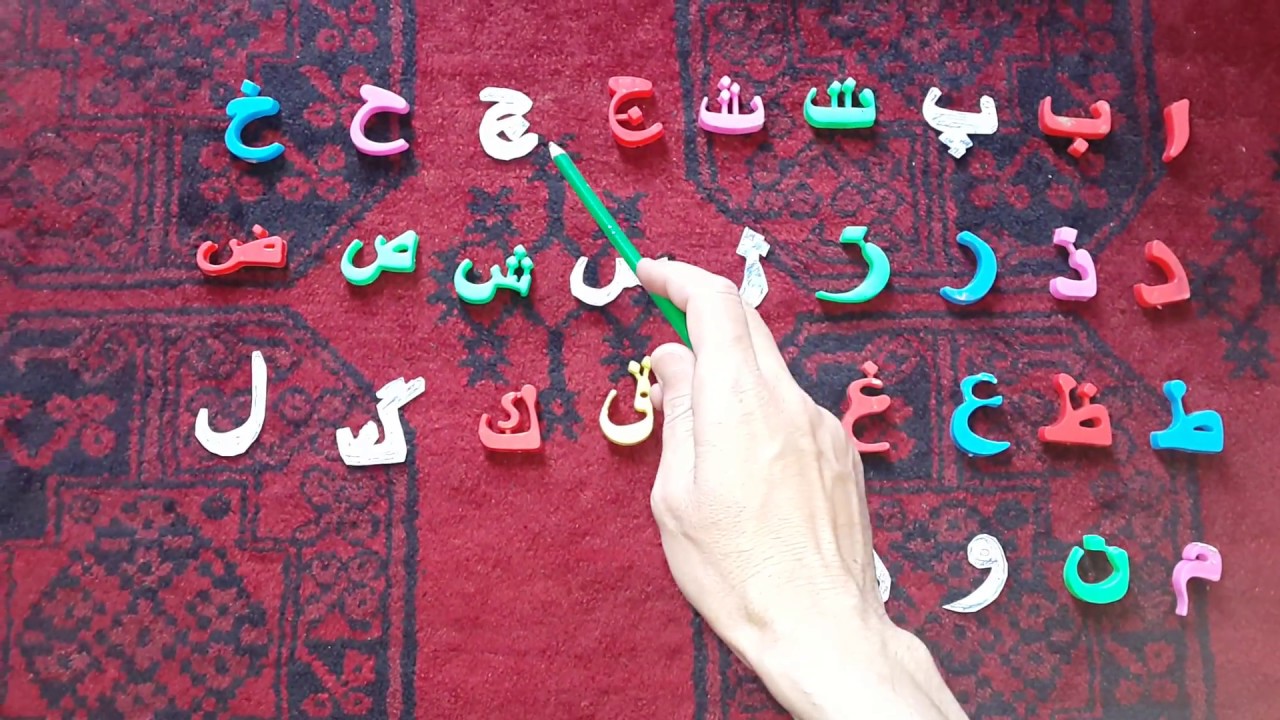 ا ب پ ت ث ج چ ح خ
د ذ ر ز ژ س ش ص ض
ط ظ ع غ ق ك گ ل
م ن و